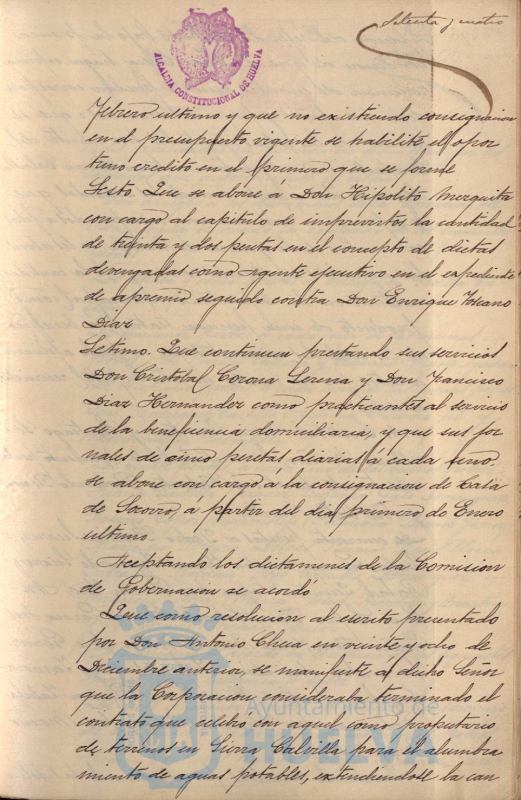 Setenta y cuatro
ALCALDIA CONSTITUCIONAL DE HUELVA
Febrero ultimo y que no existiendo consignacion
en el presupuesto vigente se habilite el opor
tuno credito en el primero que se forme
Sesto. Que se abone á Don Hipólito Mezquita
con cargo al capitulo de imprevistos la cantidad
de treinta y dos pesetas en el concepto de dietas
devengadas como Agente ejecutivo en el expediente
de apremio seguido contra Don Enrique Toscano
Diaz
Setimo. Que continuen prestando sus servicios
Don Cristobal Corona Serena y Don Francisco
Diaz Hernandez como practicantes al servicio
de la beneficencia domiciliaria, y que sus jor
nales de cinco pesetas diarias á cada uno.
se abone con cargo á la consignacion de Casa
de Socorro, á partir del dia primero de Enero
ultimo.
Aceptando los dictamenes de la Comision
de Gobernacion se acordó
Que como resolucion al escrito presentado
por Don Antonio Checa en veinte y ocho de
Diciembre anterior, se manifieste á dicho Señor
que la Corporacion consideraba terminado el
contrato que celebro con aquel como propietario
de terrenos en Sierra Calvilla para el alumbra
miento de aguas potables, extendiendole la can
Ayuntamiento de
HUELVA